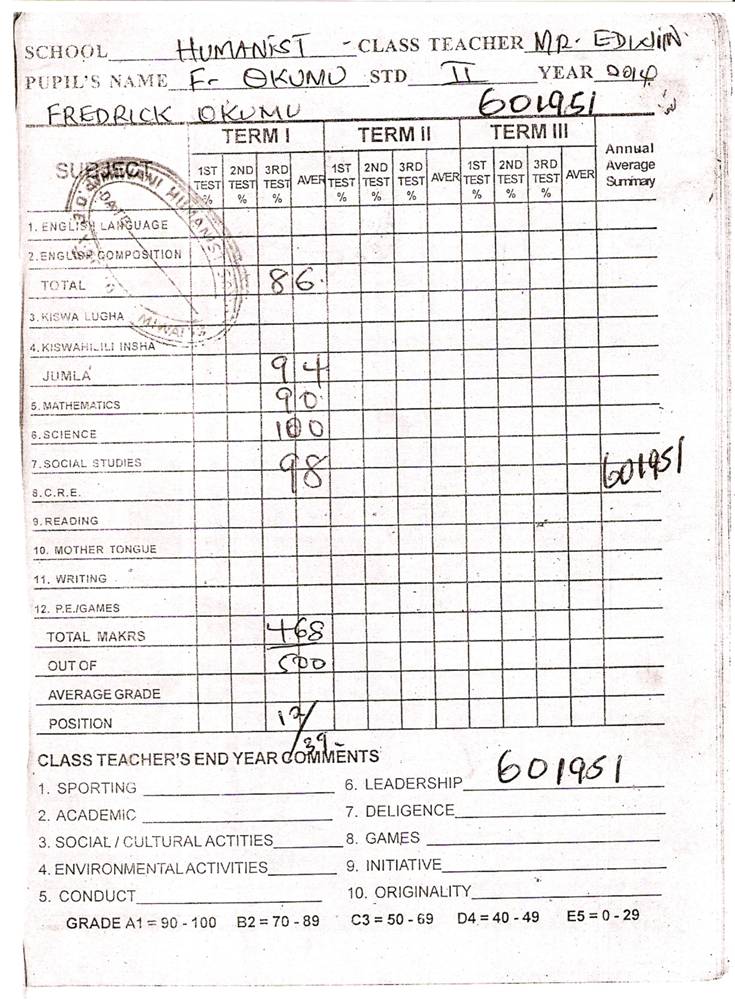 SCHOOL HUMANIST - CLASS TEACHER MR. EDWIN.
PUPIL'S NAME F- OKUMU STD II YEAR 2014
FREDRICK OKUMU 601951
TERM I TERM II TERM III Annual Average Summary
SUBJECT 1ST TEST % 2ND TEST % 3RD TEST % AVER 1ST TEST % 2ND TEST % 3RD TEST % AVER 1ST TEST % 2ND TEST % 3RD TEST % AVER
1. ENGLISH LANGUAGE
2. ENGLISH COMPOSITION
TOTAL 86.
3. KISWA LUGHA
4. KISWAHILILI INSHA
JUMLA 94
5. MATHEMATICS 90.
6. SCIENCE 100
7. SOCIAL STUDIES 98 601951
8. C.R.E.
9. READING
10. MOTHER TONGUE
11. WRITING
12. P.E./GAMES
TOTAL MAKRS 468
OUT OF 500
AVERAGE GRADE
POSITION 12/39-
CLASS TEACHER'S END YEAR COMMENTS 601951
1. SPORTING 6. LEADERSHIP
2. ACADEMIC 7. DELIGENCE
3. SOCIAL / CULTURAL ACTITIES 8. GAMES
4. ENVIRONMENTAL ACTIVITIES 9. INITIATIVE
5. CONDUCT 10. ORIGINALITY
GRADE A1 = 90 - 100 B2 = 70 - 89 C3 = 50 - 69 D4 = 40 - 49 E5 = 0 - 29